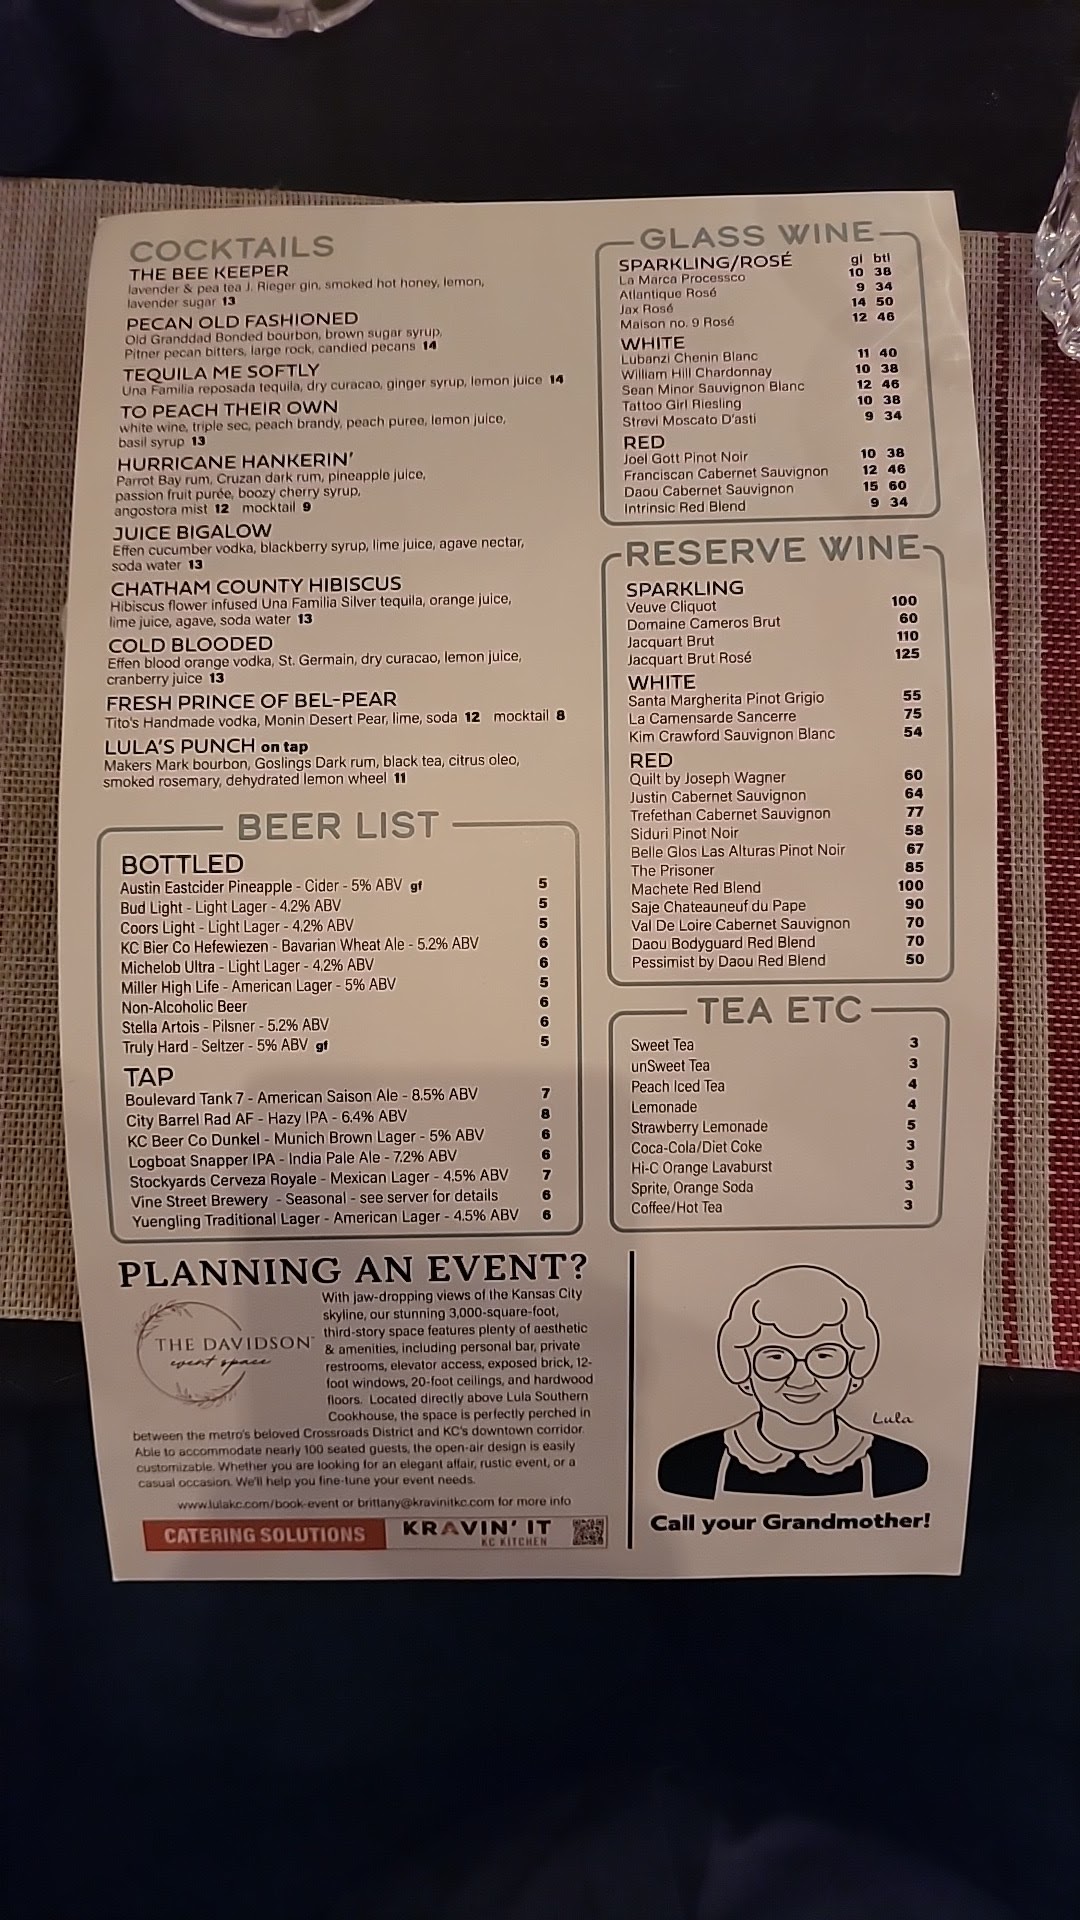 COCKTAILS
THE BEE KEEPER
lavender & pea tea J. Rieger gin, smoked hot honey, lemon,
lavender sugar 13
PECAN OLD FASHIONED
Old Granddad Bonded bourbon, brown sugar syrup,
Pitner pecan bitters, large rock, candied pecans 14
TEQUILA ME SOFTLY
Una Familia reposada tequila, dry curacao, ginger syrup, lemon juice 14
TO PEACH THEIR OWN
white wine, triple sec, peach brandy, peach puree, lemon juice,
basil syrup 13
HURRICANE HANKERIN'
Parrot Bay rum, Cruzan dark rum, pineapple juice,
passion fruit purée, boozy cherry syrup,
angostora mist 12 mocktail 9
JUICE BIGALOW
Effen cucumber vodka, blackberry syrup, lime juice, agave nectar,
soda water 13
CHATHAM COUNTY HIBISCUS
Hibiscus flower infused Una Familia Silver tequila, orange juice,
lime juice, agave, soda water 13
COLD BLOODED
Effen blood orange vodka, St. Germain, dry curacao, lemon juice,
cranberry juice 13
FRESH PRINCE OF BEL-PEAR
Tito's Handmade vodka, Monin Desert Pear, lime, soda 12 mocktail 8
LULA'S PUNCH on tap
Makers Mark bourbon, Goslings Dark rum, black tea, citrus oleo,
smoked rosemary, dehydrated lemon wheel 11
BEER LIST
BOTTLED
Austin Eastcider Pineapple - Cider - 5% ABV gf 5
Bud Light - Light Lager - 4.2% ABV 5
Coors Light - Light Lager - 4.2% ABV 5
KC Bier Co Hefewiezen - Bavarian Wheat Ale - 5.2% ABV 6
Michelob Ultra - Light Lager - 4.2% ABV 6
Miller High Life - American Lager - 5% ABV 5
Non-Alcoholic Beer 6
Stella Artois - Pilsner - 5.2% ABV 6
Truly Hard - Seltzer - 5% ABV gf 5
TAP
Boulevard Tank 7 - American Saison Ale - 8.5% ABV 7
City Barrel Rad AF - Hazy IPA - 6.4% ABV 8
KC Beer Co Dunkel - Munich Brown Lager - 5% ABV 6
Logboat Snapper IPA - India Pale Ale - 7.2% ABV 6
Stockyards Cerveza Royale - Mexican Lager - 4.5% ABV 7
Vine Street Brewery - Seasonal - see server for details 6
Yuengling Traditional Lager - American Lager - 4.5% ABV 6
GLASS WINE
SPARKLING/ROSÉ gl btl
La Marca Processco 10 38
Atlantique Rosé 9 34
Jax Rosé 14 50
Maison no. 9 Rosé 12 46
WHITE
Lubanzi Chenin Blanc 11 40
William Hill Chardonnay 10 38
Sean Minor Sauvignon Blanc 12 46
Tattoo Girl Riesling 10 38
Strevi Moscato D'asti 9 34
RED
Joel Gott Pinot Noir 10 38
Franciscan Cabernet Sauvignon 12 46
Daou Cabernet Sauvignon 15 60
Intrinsic Red Blend 9 34
RESERVE WINE
SPARKLING
Veuve Cliquot 100
Domaine Cameros Brut 60
Jacquart Brut 110
Jacquart Brut Rosé 125
WHITE
Santa Margherita Pinot Grigio 55
La Camensarde Sancerre 75
Kim Crawford Sauvignon Blanc 54
RED
Quilt by Joseph Wagner 60
Justin Cabernet Sauvignon 64
Trefethan Cabernet Sauvignon 77
Siduri Pinot Noir 58
Belle Glos Las Alturas Pinot Noir 67
The Prisoner 85
Machete Red Blend 100
Saje Chateauneuf du Pape 90
Val De Loire Cabernet Sauvignon 70
Daou Bodyguard Red Blend 70
Pessimist by Daou Red Blend 50
TEA ETC
Sweet Tea 3
unSweet Tea 3
Peach Iced Tea 4
Lemonade 4
Strawberry Lemonade 5
Coca-Cola/Diet Coke 3
Hi-C Orange Lavaburst 3
Sprite, Orange Soda 3
Coffee/Hot Tea 3
PLANNING AN EVENT?
THE DAVIDSON
event space
With jaw-dropping views of the Kansas City
skyline, our stunning 3,000-square-foot,
third-story space features plenty of aesthetic
& amenities, including personal bar, private
restrooms, elevator access, exposed brick, 12-
foot windows, 20-foot ceilings, and hardwood
floors. Located directly above Lula Southern
Cookhouse, the space is perfectly perched in
between the metro's beloved Crossroads District and KC's downtown corridor.
Able to accommodate nearly 100 seated guests, the open-air design is easily
customizable. Whether you are looking for an elegant affair, rustic event, or a
casual occasion. We'll help you fine-tune your event needs.
www.lulakc.com/book-event or brittany@kravinitkc.com for more info
CATERING SOLUTIONS KRAVIN' IT
KC KITCHEN
Lula
Call your Grandmother!